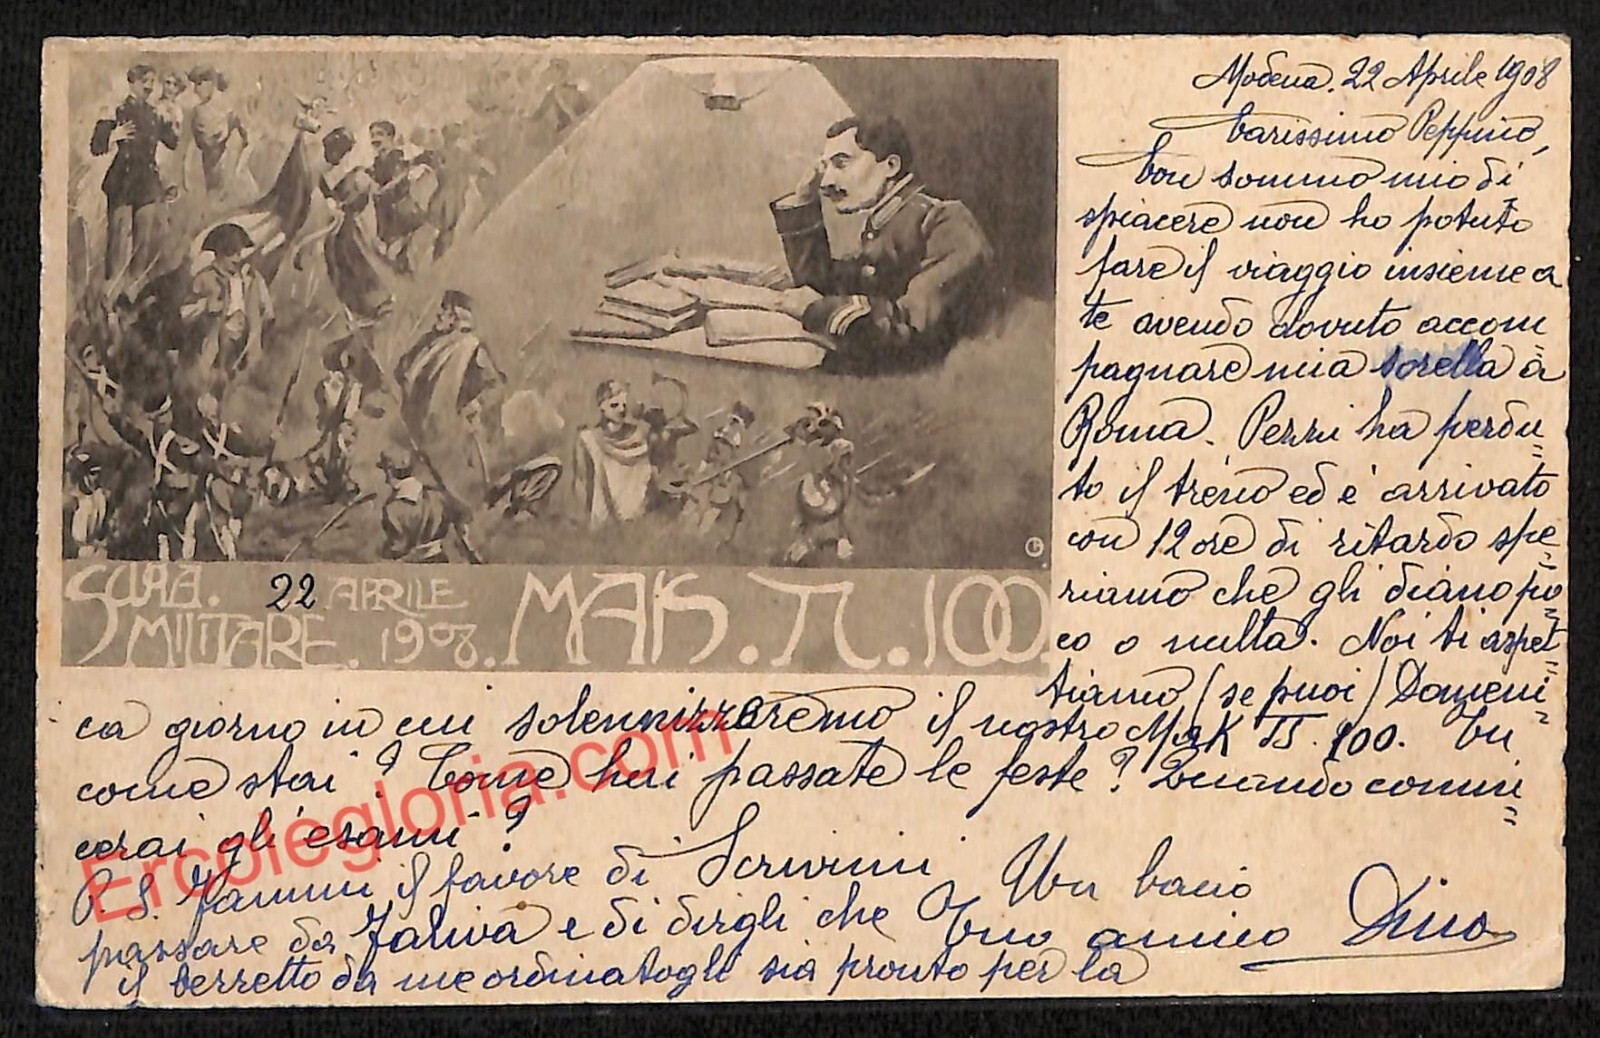 Modena. 22 Aprile 1908
Carissimo Peppino,
Con sommo mio di
spiacere non ho potuto
fare il viaggio insieme a
te avendo dovuto accom
pagnare mia sorella a
Roma. Perri ha perdu=
to il treno ed è arrivato
con 12 ore di ritardo spe=
riamo che gli diano po=
co o nulla. Noi ti aspet=
tiamo (se puoi) Domeni=
SCUOLA. 22 APRILE MAK. π. 100.
MILITARE. 1908.
G
ca giorno in cui solennizzeremo il nostro Mak π. 100. Tu
come stai? Come hai passate le feste? Quando comin=
cerai gli esami?
P.S. Fammi il favore di Scrivimi Un bacio
passare da e di dirgli che Tuo amico Dino
il berretto da me ordinatogli sia pronto per la
Ercolegloria.com